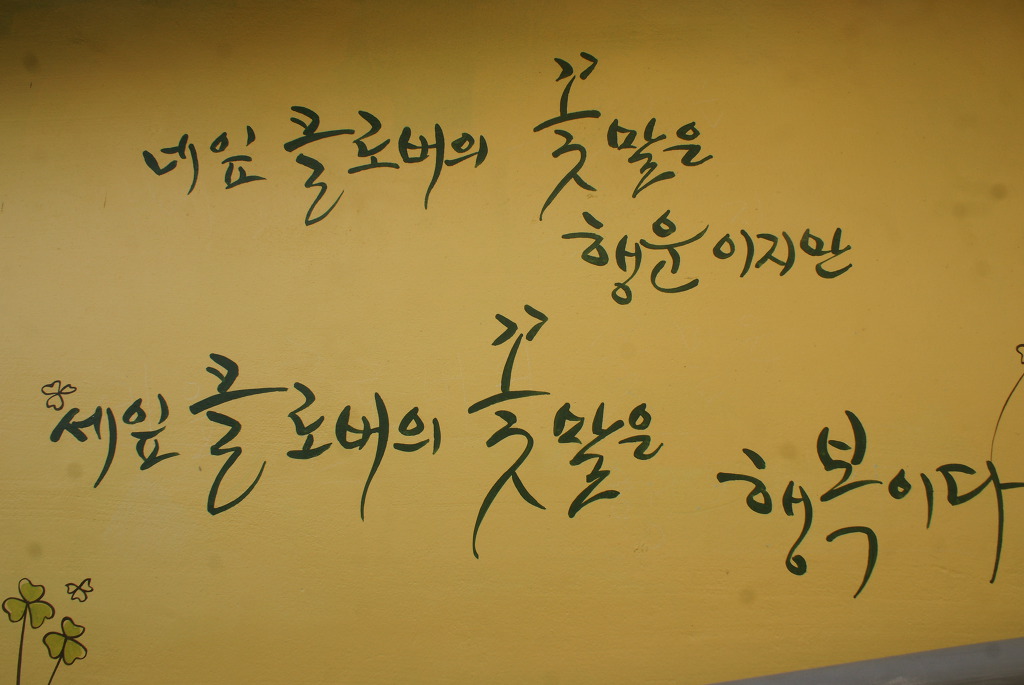 네잎 클로버의 꽃말은
행운이지만
세잎 클로버의 꽃말은
행복이다